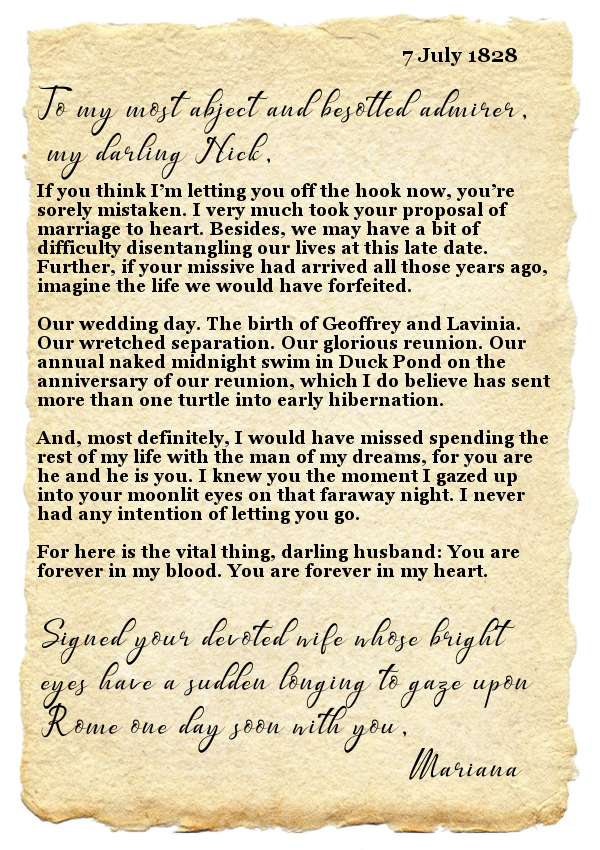 7 July 1828
To my most abject and besotted admirer,
my darling Nick,
If you think I'm letting you off the hook now, you're
sorely mistaken. I very much took your proposal of
marriage to heart. Besides, we may have a bit of
difficulty disentangling our lives at this late date.
Further, if your missive had arrived all those years ago,
imagine the life we would have forfeited.
Our wedding day. The birth of Geoffrey and Lavinia.
Our wretched separation. Our glorious reunion. Our
annual naked midnight swim in Duck Pond on the
anniversary of our reunion, which I do believe has sent
more than one turtle into early hibernation.
And, most definitely, I would have missed spending the
rest of my life with the man of my dreams, for you are
he and he is you. I knew you the moment I gazed up
into your moonlit eyes on that faraway night. I never
had any intention of letting you go.
For here is the vital thing, darling husband: You are
forever in my blood. You are forever in my heart.
Signed your devoted wife whose bright
eyes have a sudden longing to gaze upon
Rome one day soon with you,
Mariana